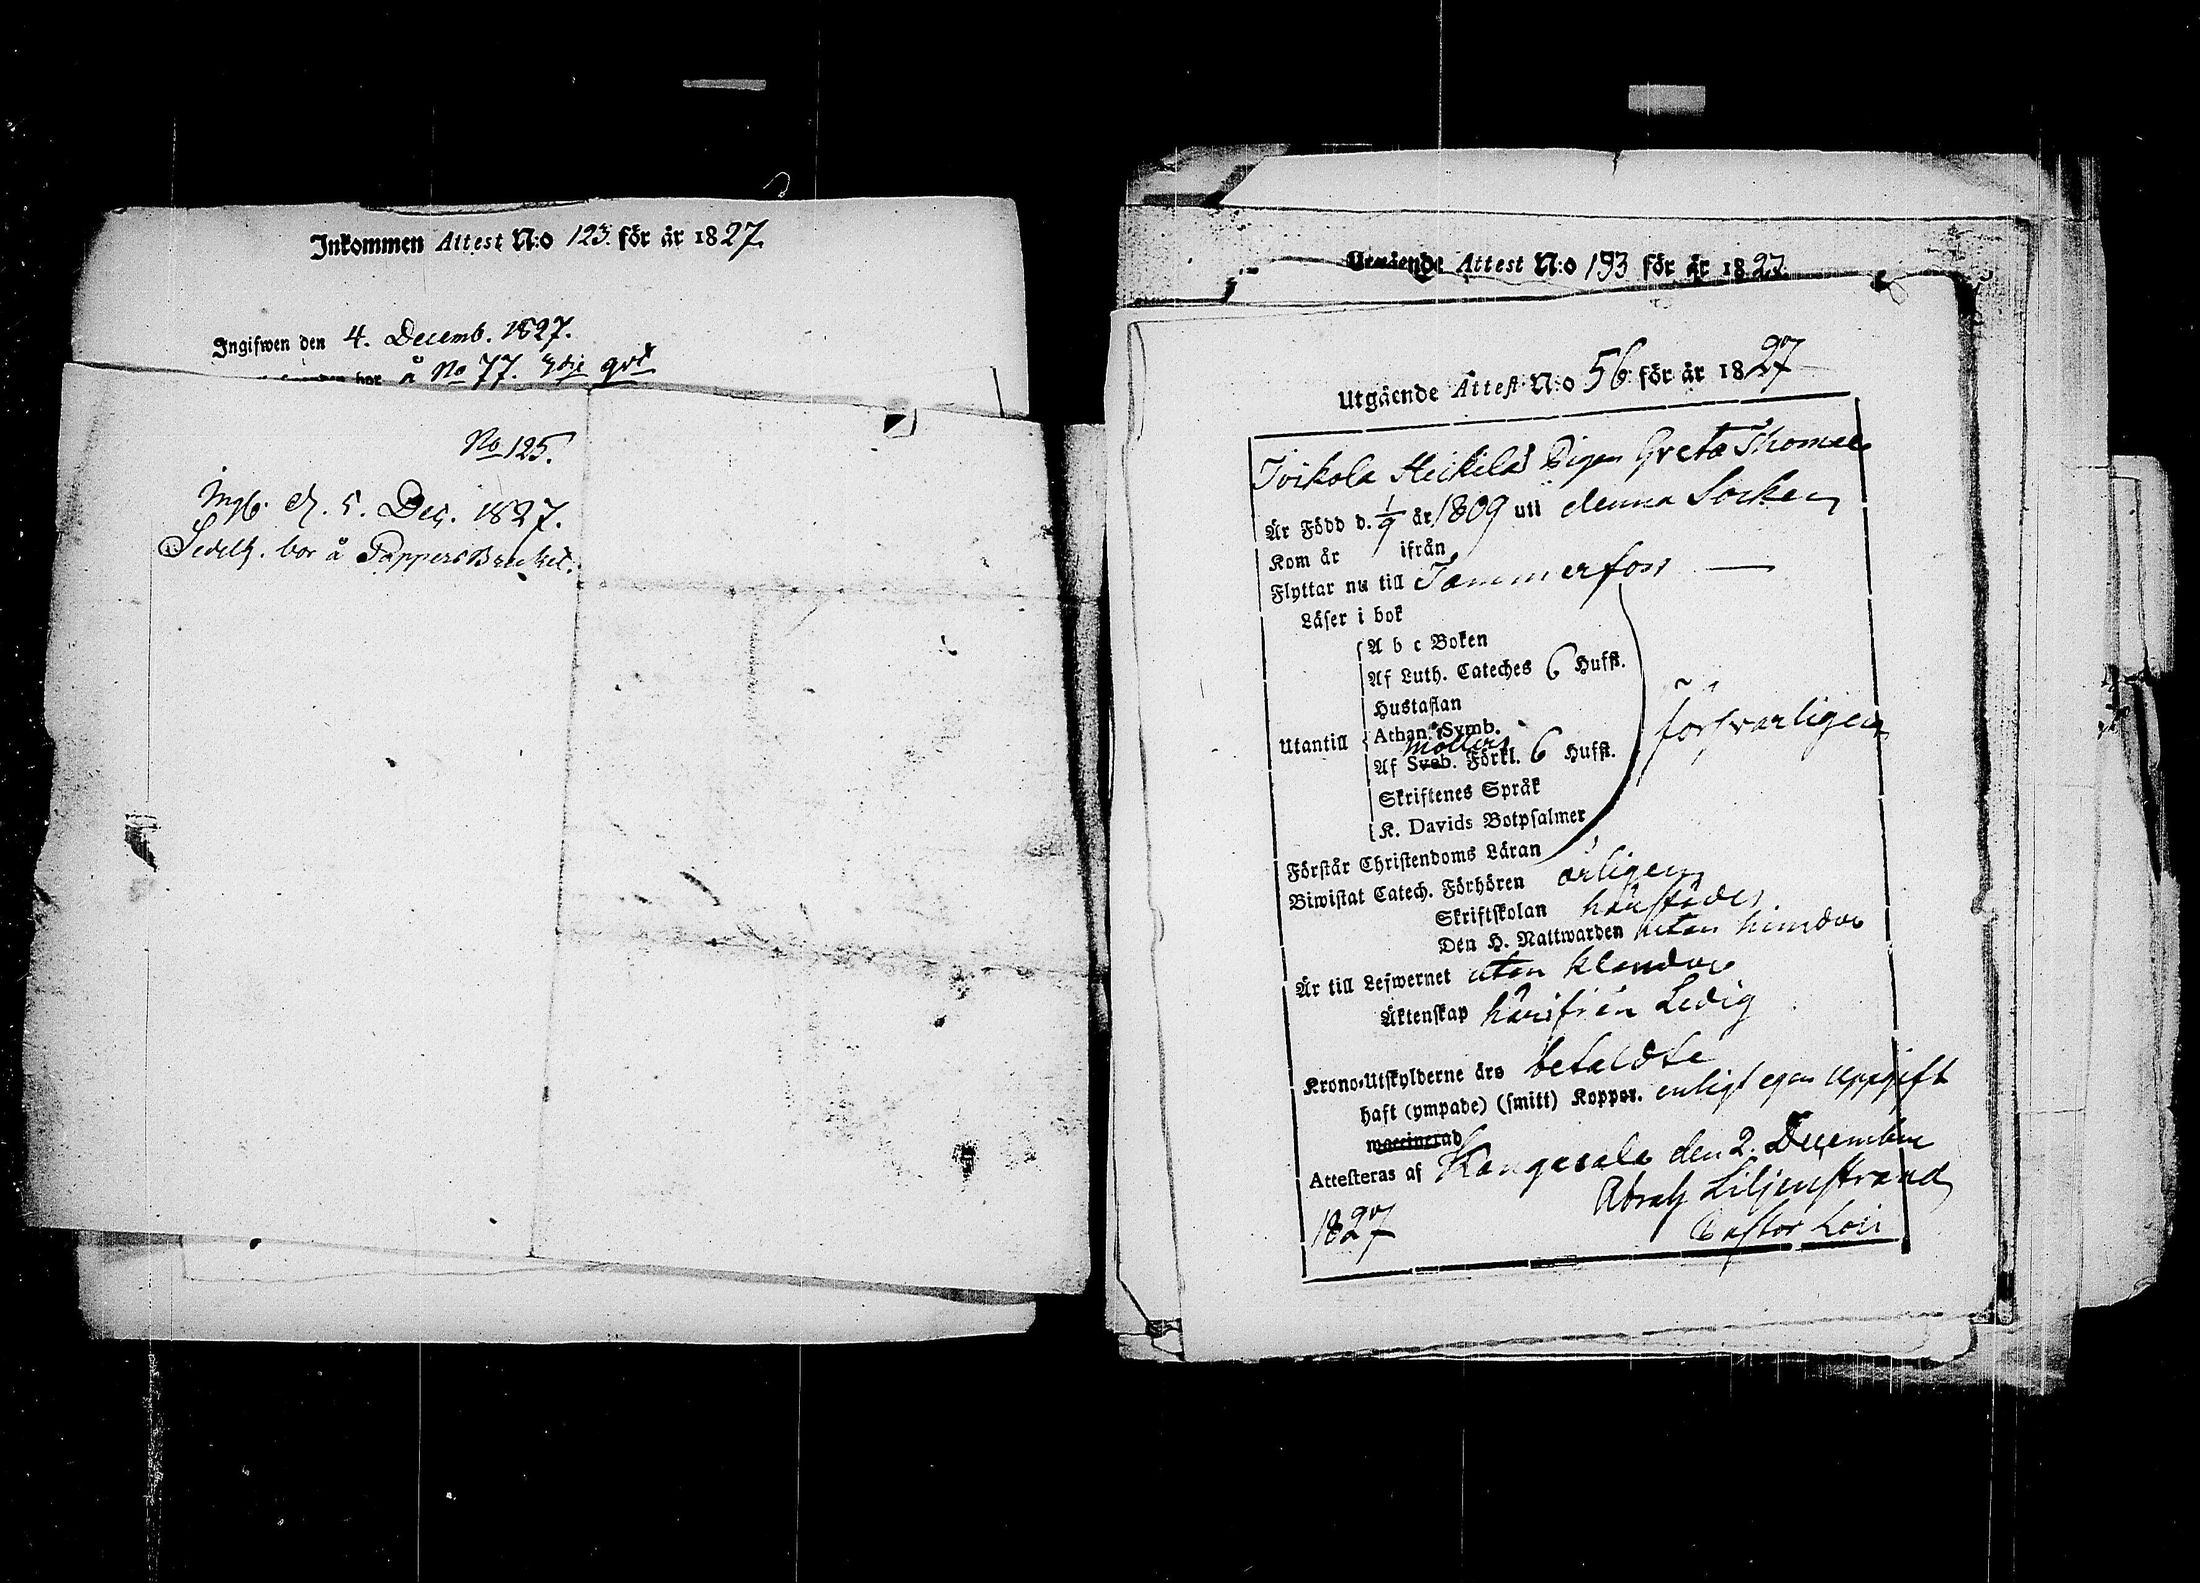 Inkommen Attest N:o 123. för år 1827.
Ingifwen den 4. Decemb. 1827.
bor å No 77. 3dje qvt
No 125.
Ingb. d. 5. Dec. 1827.
Sedelh. bor å PappersBruket.
Utgående Attest N:o 193 för år 1827.
Utgående Attest N:o 56 för år 1827
Toikola Heikilas Pigan Greta Thomae
Är Född d. 1/9 år 1809 uti denna Socken
Kom år ifrån
Flyttar nu till Tammerfors —
Läser i bok
A b c Boken
Af Luth. Cateches 6 Hufst.
Hustaflan
Athan. Symb.
Utantill
Möllers
Af Sveb. Förkl. 6 Hufst.
försvarligen
Skriftenes Språk
K. Davids Botpsalmer
Förstår Christendoms Läran
Biwistat Catech. Förhören årligen
Skriftskolan härstädes
Den H. Nattwarden utan hinder
Är till Lefwernet utan klander
Äktenskap härifrån Ledig
Krono-Utskylderne äro betaldte
haft (ympade) (smitt) Koppor. enligt egen uppgift
waccinerad
Attesteras af Kangasala den 2. December
1827
Abrah Liljenstrand
Pastor Loci